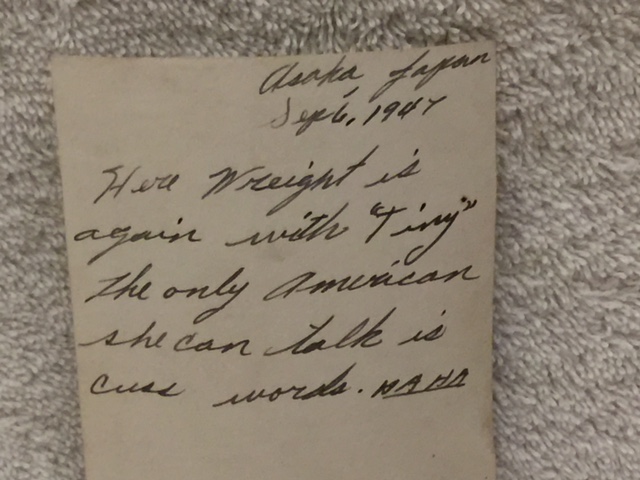 Asaka, Japan
Sep 6, 1947
Here Wreight is
again with "Tiny"
the only American
she can talk is
cuss words. HAHA